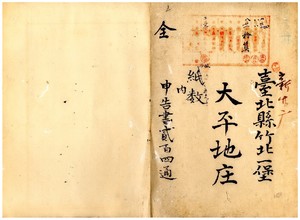 臺北縣竹北一堡
大平地庄
紙数
内
申告書貳百四通
全